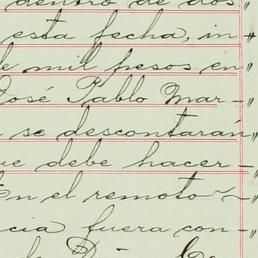 dentro de dos
esta fecha, in-
de mil pesos en
José Pablo Mar-
se descontarán
ue debe hacer-
En el remoto
cia fuera con-